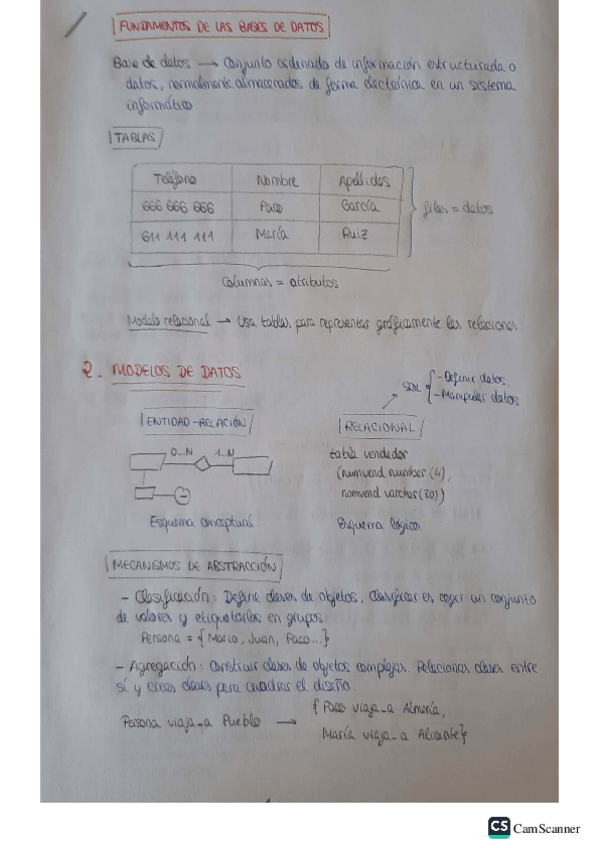 FUNDAMENTOS DE LAS BASES DE DATOS
Base de datos → Conjunto ordenado de información estructurada o
datos, normalmente almacenados de forma electrónica en un sistema
informático
TABLAS
Teléfono Nombre Apellidos
666 666 666 Paco García
611 111 111 María Ruiz
filas = datos
Columnas = atributos
Modelo relacional → Usa tablas para representar gráficamente las relaciones
2. MODELOS DE DATOS
SQL { - Definir datos.
- Manipular datos
ENTIDAD-RELACIÓN
RELACIONAL
0..N 1..N
tabla vendedor
(numvend number (4),
nomvend varchar(30))
Esquema conceptual.
Esquema lógico.
MECANISMOS DE ABSTRACCIÓN
- Clasificación: Define clases de objetos. Clasificar es coger un conjunto
de valores y etiquetarlos en grupos.
Persona = {Mario, Juan, Paco...}
- Agregación: Construir clases de objetos complejas. Relacionar clases entre
sí y crear clases para cuadrar el diseño.
Persona viaja_a Pueblo → {Paco viaja_a Almería,
María viaja_a Alicante}
CS CamScanner